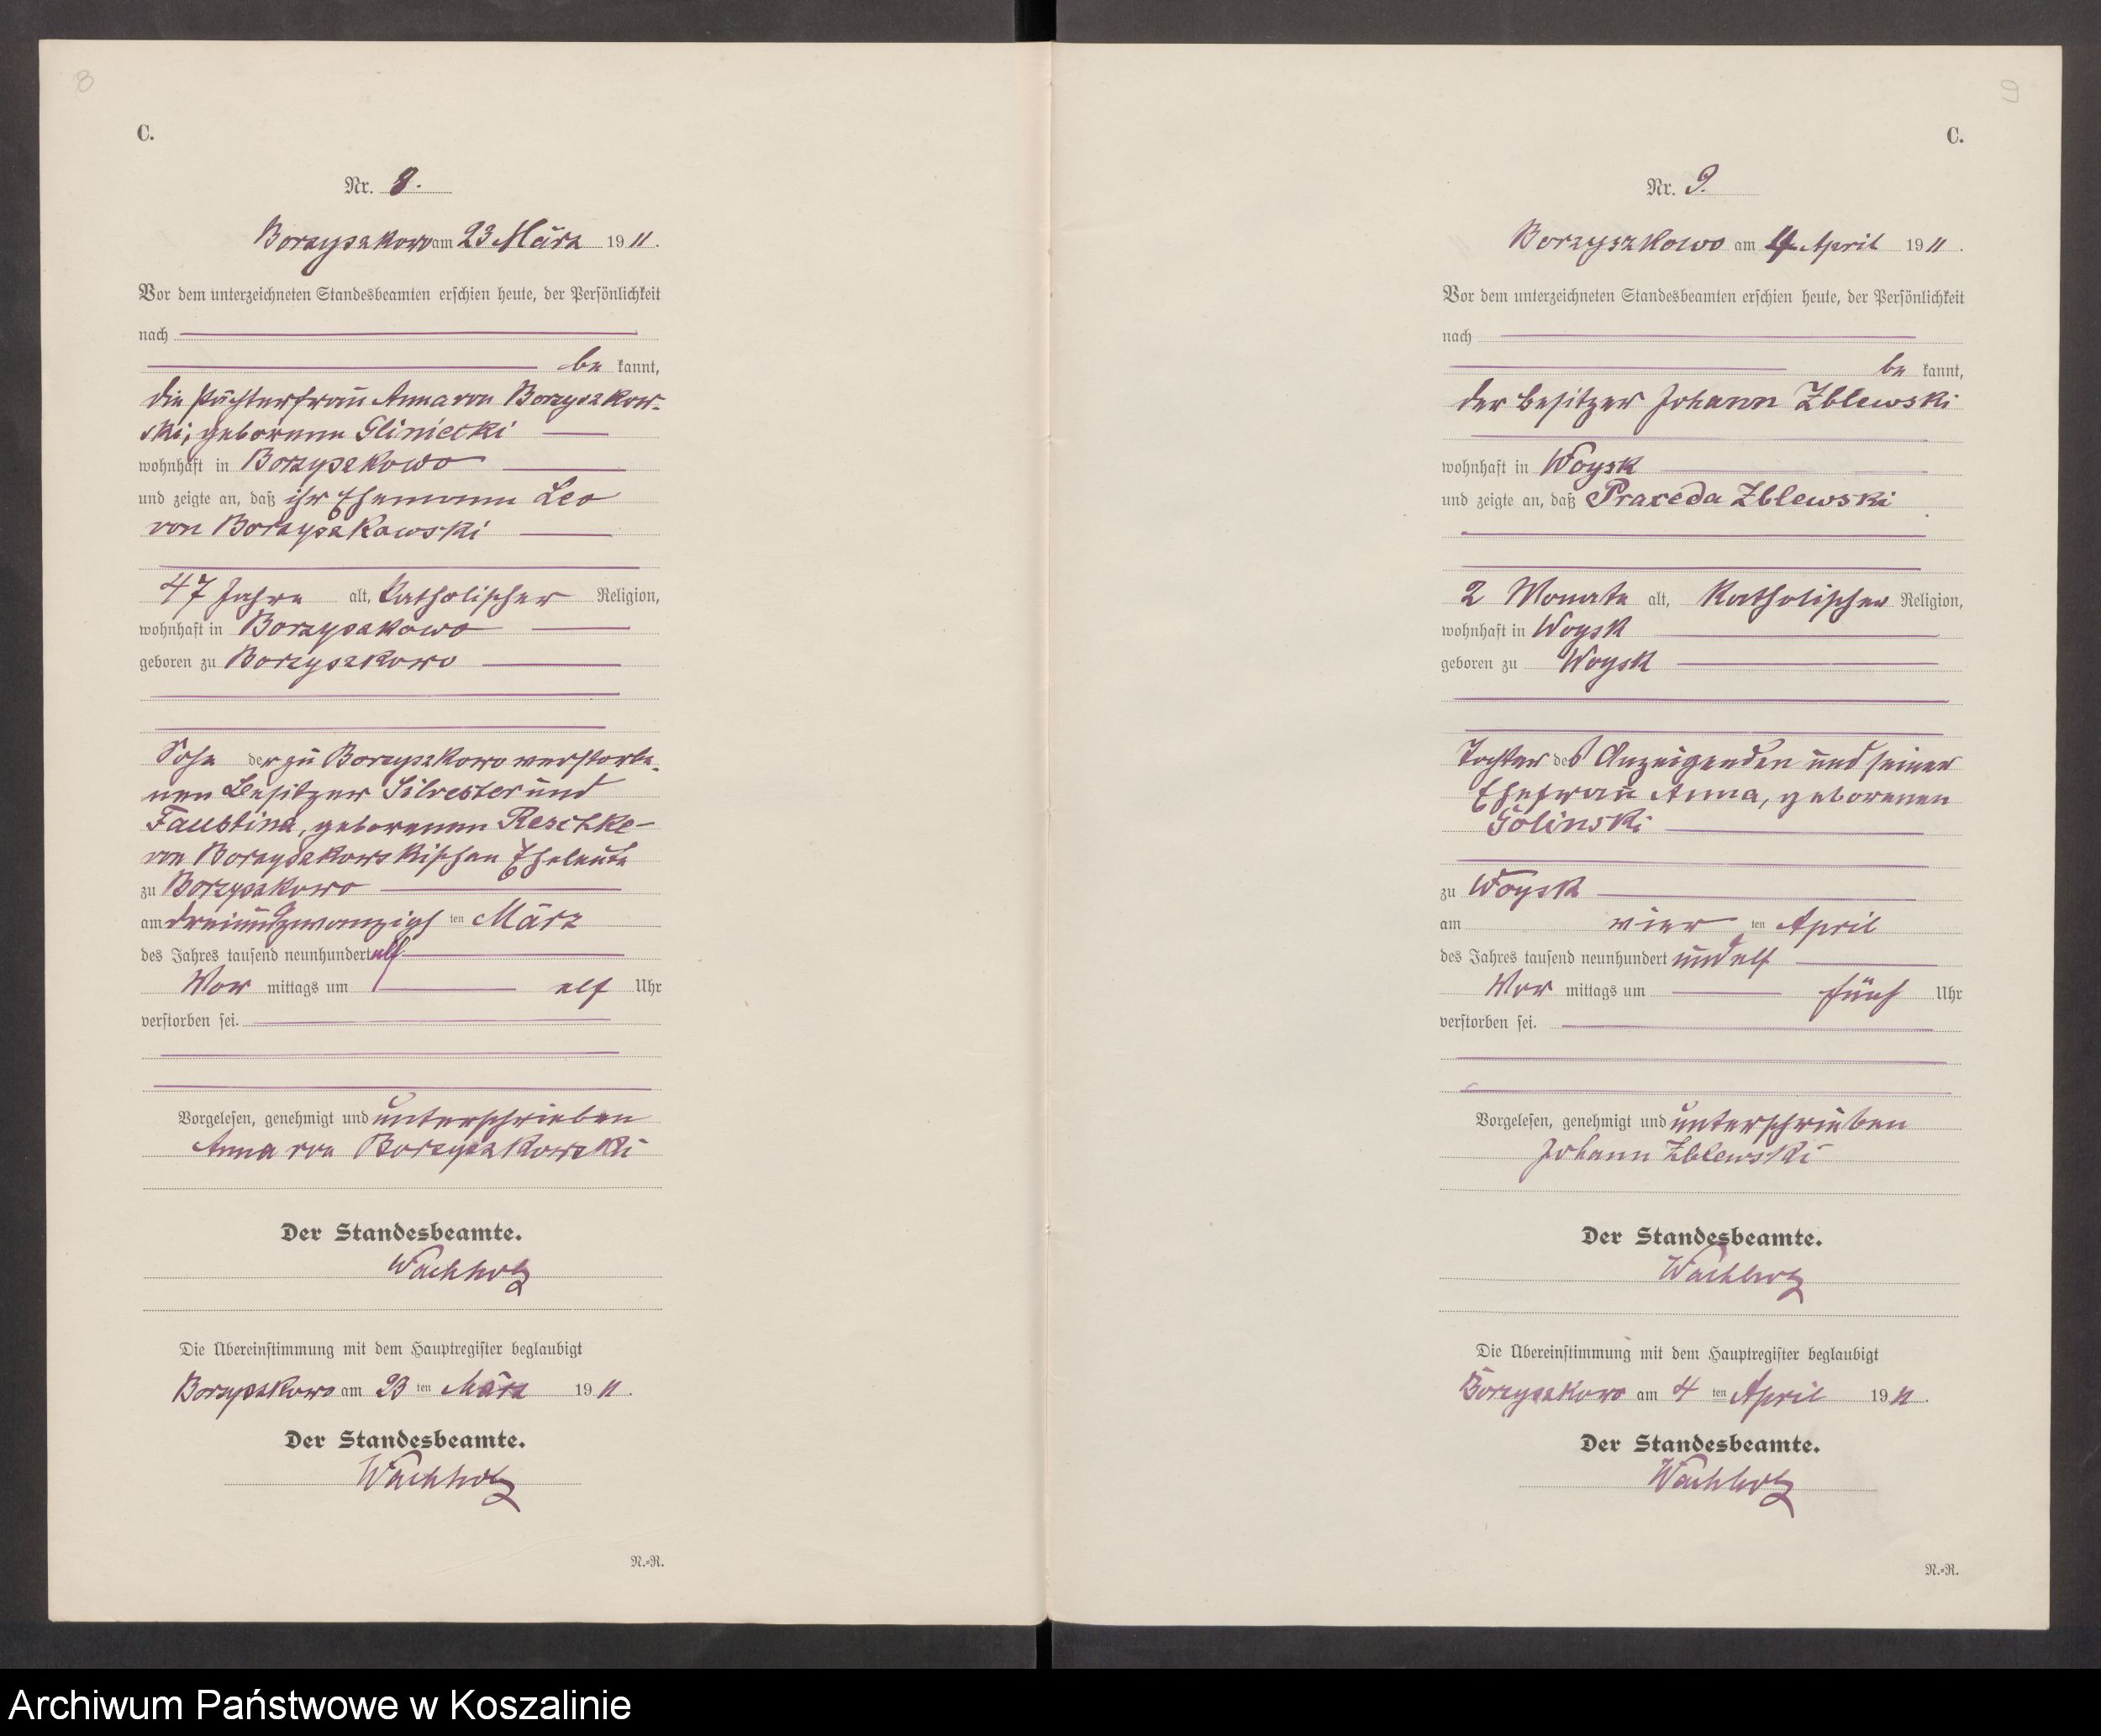 8
C.
Nr. 8.
Borzyszkowo am 23 März 1911.
Vor dem unterzeichneten Standesbeamten erschien heute, der Persönlichkeit
nach
be kannt,
die Pächterfrau Anna von Borzyszkow-
ski, geborene Gliniecki
wohnhaft in Borzyszkowo
und zeigte an, daß ihr Ehemann Leo
von Borzyszkowski
47 Jahre alt, katholischer Religion,
wohnhaft in Borzyszkowo
geboren zu Borzyszkowo
Sohn der zu Borzyszkowo verstorbe-
nen Besitzer Silvester und
Faustina, geborenen Reschke-
von Borzyszkowskischen Eheleute
zu Borzyszkowo
am dreiundzwanzigs ten März
des Jahres tausend neunhundert elf
Vor mittags um elf Uhr
verstorben sei.
Vorgelesen, genehmigt und unterschrieben
Anna von Borzyszkowski
Der Standesbeamte.
Wachholz
Die Übereinstimmung mit dem Hauptregister beglaubigt
Borzyszkowo am 23 ten März 1911.
Der Standesbeamte.
Wachholz
N.-R.
9
C.
Nr. 9.
Borzyszkowo am 4. April 1911.
Vor dem unterzeichneten Standesbeamten erschien heute, der Persönlichkeit
nach
be kannt,
der Besitzer Johann Zblewski
wohnhaft in Woysk
und zeigte an, daß Praxeda Zblewski
2 Monate alt, katholischer Religion,
wohnhaft in Woysk
geboren zu Woysk
Tochter des Anzeigenden und seiner
Ehefrau Anna, geborenen
Golinski
zu Woysk
am vier ten April
des Jahres tausend neunhundert und elf
Vor mittags um fünf Uhr
verstorben sei.
Vorgelesen, genehmigt und unterschrieben
Johann Zblewski
Der Standesbeamte.
Wachholz
Die Übereinstimmung mit dem Hauptregister beglaubigt
Borzyszkowo am 4 ten April 1911.
Der Standesbeamte.
Wachholz
N.-R.
Archiwum Państwowe w Koszalinie